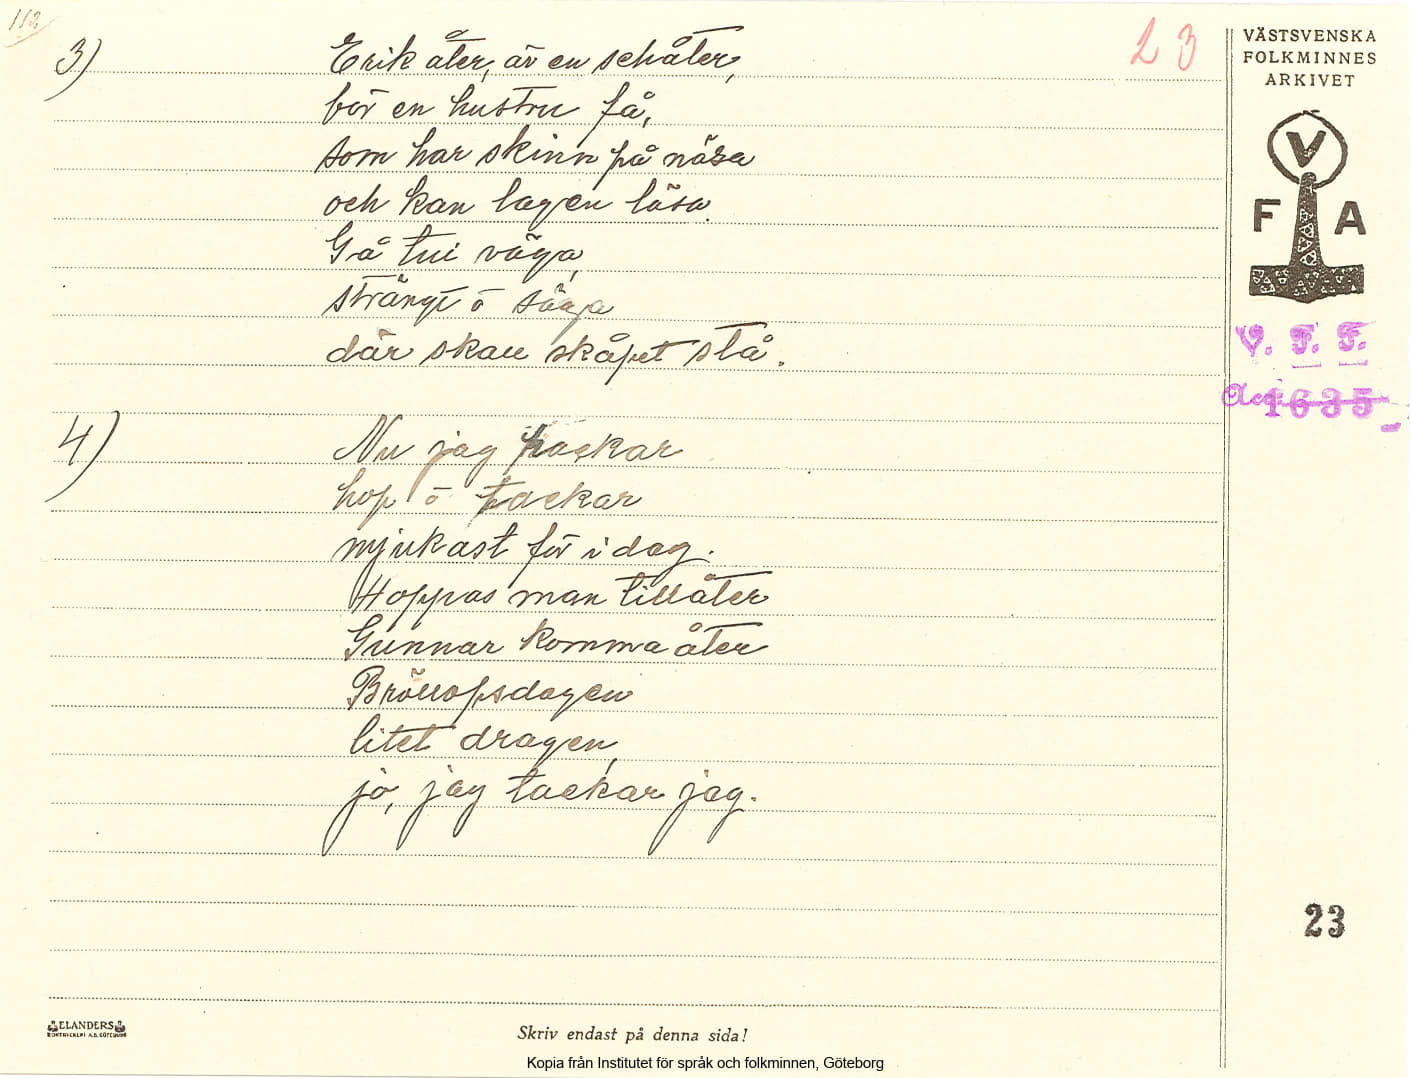 112
3)
23
Erik åter, är en schåter,
bör en hustru få,
som har skinn på näsa
och kan lagen läsa.
Gå tui väga,
strängt ö säga
där skau skåpet stå.
4)
Nu jag packar
hop ö tackar
mjukast för i dag.
Hoppas man tillåter
Gunnar komma åter
Bröllopsdagen
litet dragen,
jo, jag tackar jag.
VÄSTSVENSKA
FOLKMINNES
ARKIVET
V
F A
V. F. F.
Acc. 1635
23
ELANDERS
BOKTRYCKERI A.B. GÖTEBORG
Skriv endast på denna sida!
Kopia från Institutet för språk och folkminnen, Göteborg